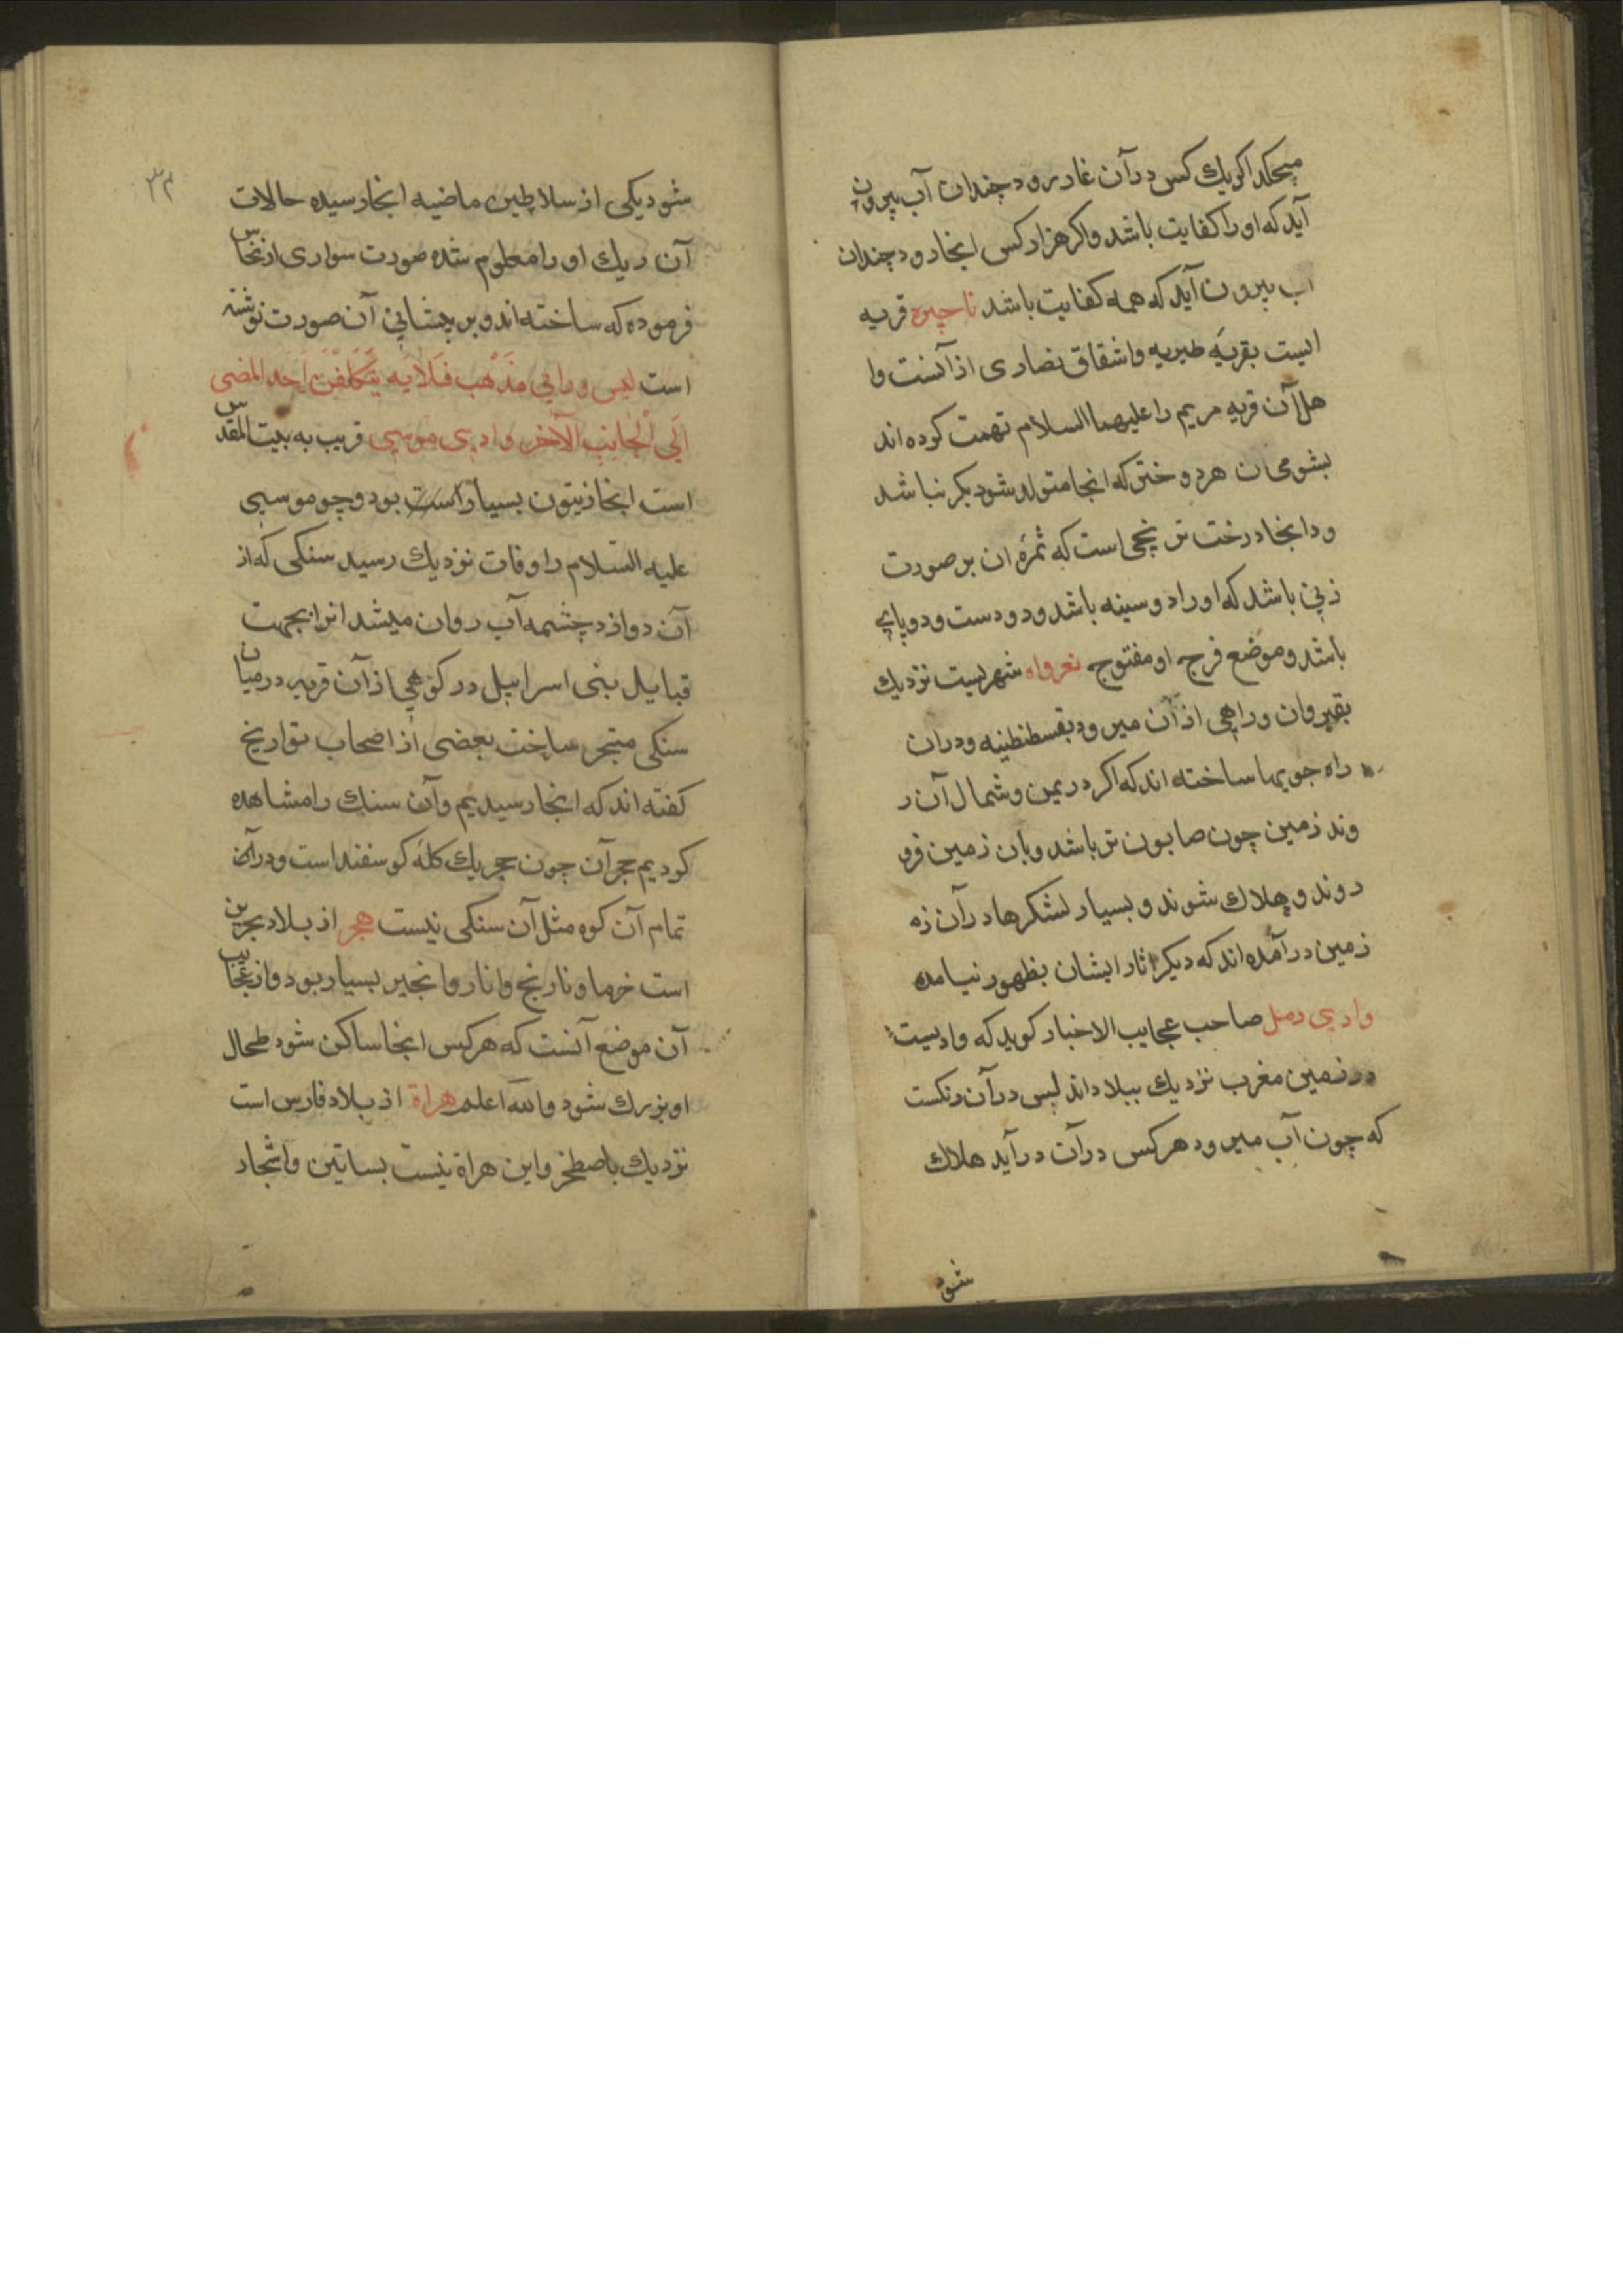 میچکد اکر یك کس در آن غار رود چندان آب بیرون
آید که او را کفایت باشد واکر هزار کس انجا رود چندان
اب بیرون آید که همه کفایت باشد ناحیره قریه
ایست بقریه طبریه واشقاق نصاری از آنست وا
هل آن قریه مریم را علیهما السلام تهمت کرده اند
بشومی ان هر دختر که انجا متولد شود بکر نباشد
ودا نجا درخت ترنجی است که ثمره ان بر صورت
زنی باشد که او را دو سینه باشد ودو دست ودو پای
باشد وموضع فرج او مفتوح نعرواه شهریست نزدیك
بقیروان وراهی از آن میرود بقسطنطنیه ودران
راه جویها ساخته اند که اکر در یمین وشمال آن ر
وند زمین چون صابون تر باشد وبان زمین فرو
روند وهلاك شوند وبسیار لشکرها در آن زه
زمین در آمده اند که دیکر اثار ایشان بظهور نیامده
وادی رمل صاحب عجایب الاخبار کوید که وادیست
در زمین مغرب نزدیك ببلاد اندلس در آن ریکست
که چون آب میرود هر کس در آن در آید هلاك
شود
٣٣
شود یکی از سلاطین ماضیه انجا رسیده حالات
آن ریك او را معلوم شده صورت سواری از نحاس
فرموده که ساخته اند وبر پیشانی آن صورت نوشته
است لیس ورائی مذهب فلا یتکلفن احد المضی
الی الجانب الآخر وادی موسی قریب به بیت المقدس
است انجا زیتون بسیار است بود وچو موسی
علیه السلام را وفات نزدیك رسید سنکی که از
آن دوازد چشمه آب روان میشد انرا بجهت
قبایل بنی اسراییل در کوهی از آن قریه در میان
سنکی متحجر ساخت بعضی از اصحاب تواریخ
کفته اند که انجا رسیدیم وآن سنك را مشاهده
کردیم حجر آن چون حجر یك کله کوسفند است ودر آن
تمام آن کوه مثل آن سنکی نیست هجر از بلاد بحرین
است خرما ونارنج وانار وانجیر بسیار بود واز عجایب
آن موضع آنست که هر کس انجا ساکن شود طحال
او بزرك شود والله اعلم هراة از بلاد فارس است
نزدیك باصطخر واین هراة نیست بساتین واشجار